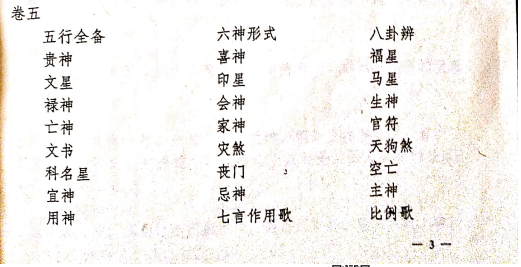 卷五
五行全备 六神形式 八卦辨
贵神 喜神 福星
文星 印星 马星
禄神 会神 生神
亡神 家神 官符
文书 灾煞 天狗煞
科名星 丧门 空亡
宜神 忌神 主神
用神 七言作用歌 比例歌
— 3 —